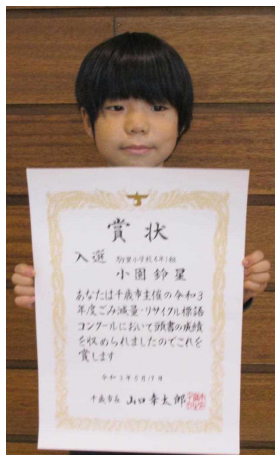 賞状
入選 駒里小学校6年1組
小園鈴星
あなたは千歳市主催の令和3
年度ごみ減量・リサイクル標語
コンクールにおいて頭書の成績
を収められましたのでこれを
賞します
千歳市長 山口幸太郎